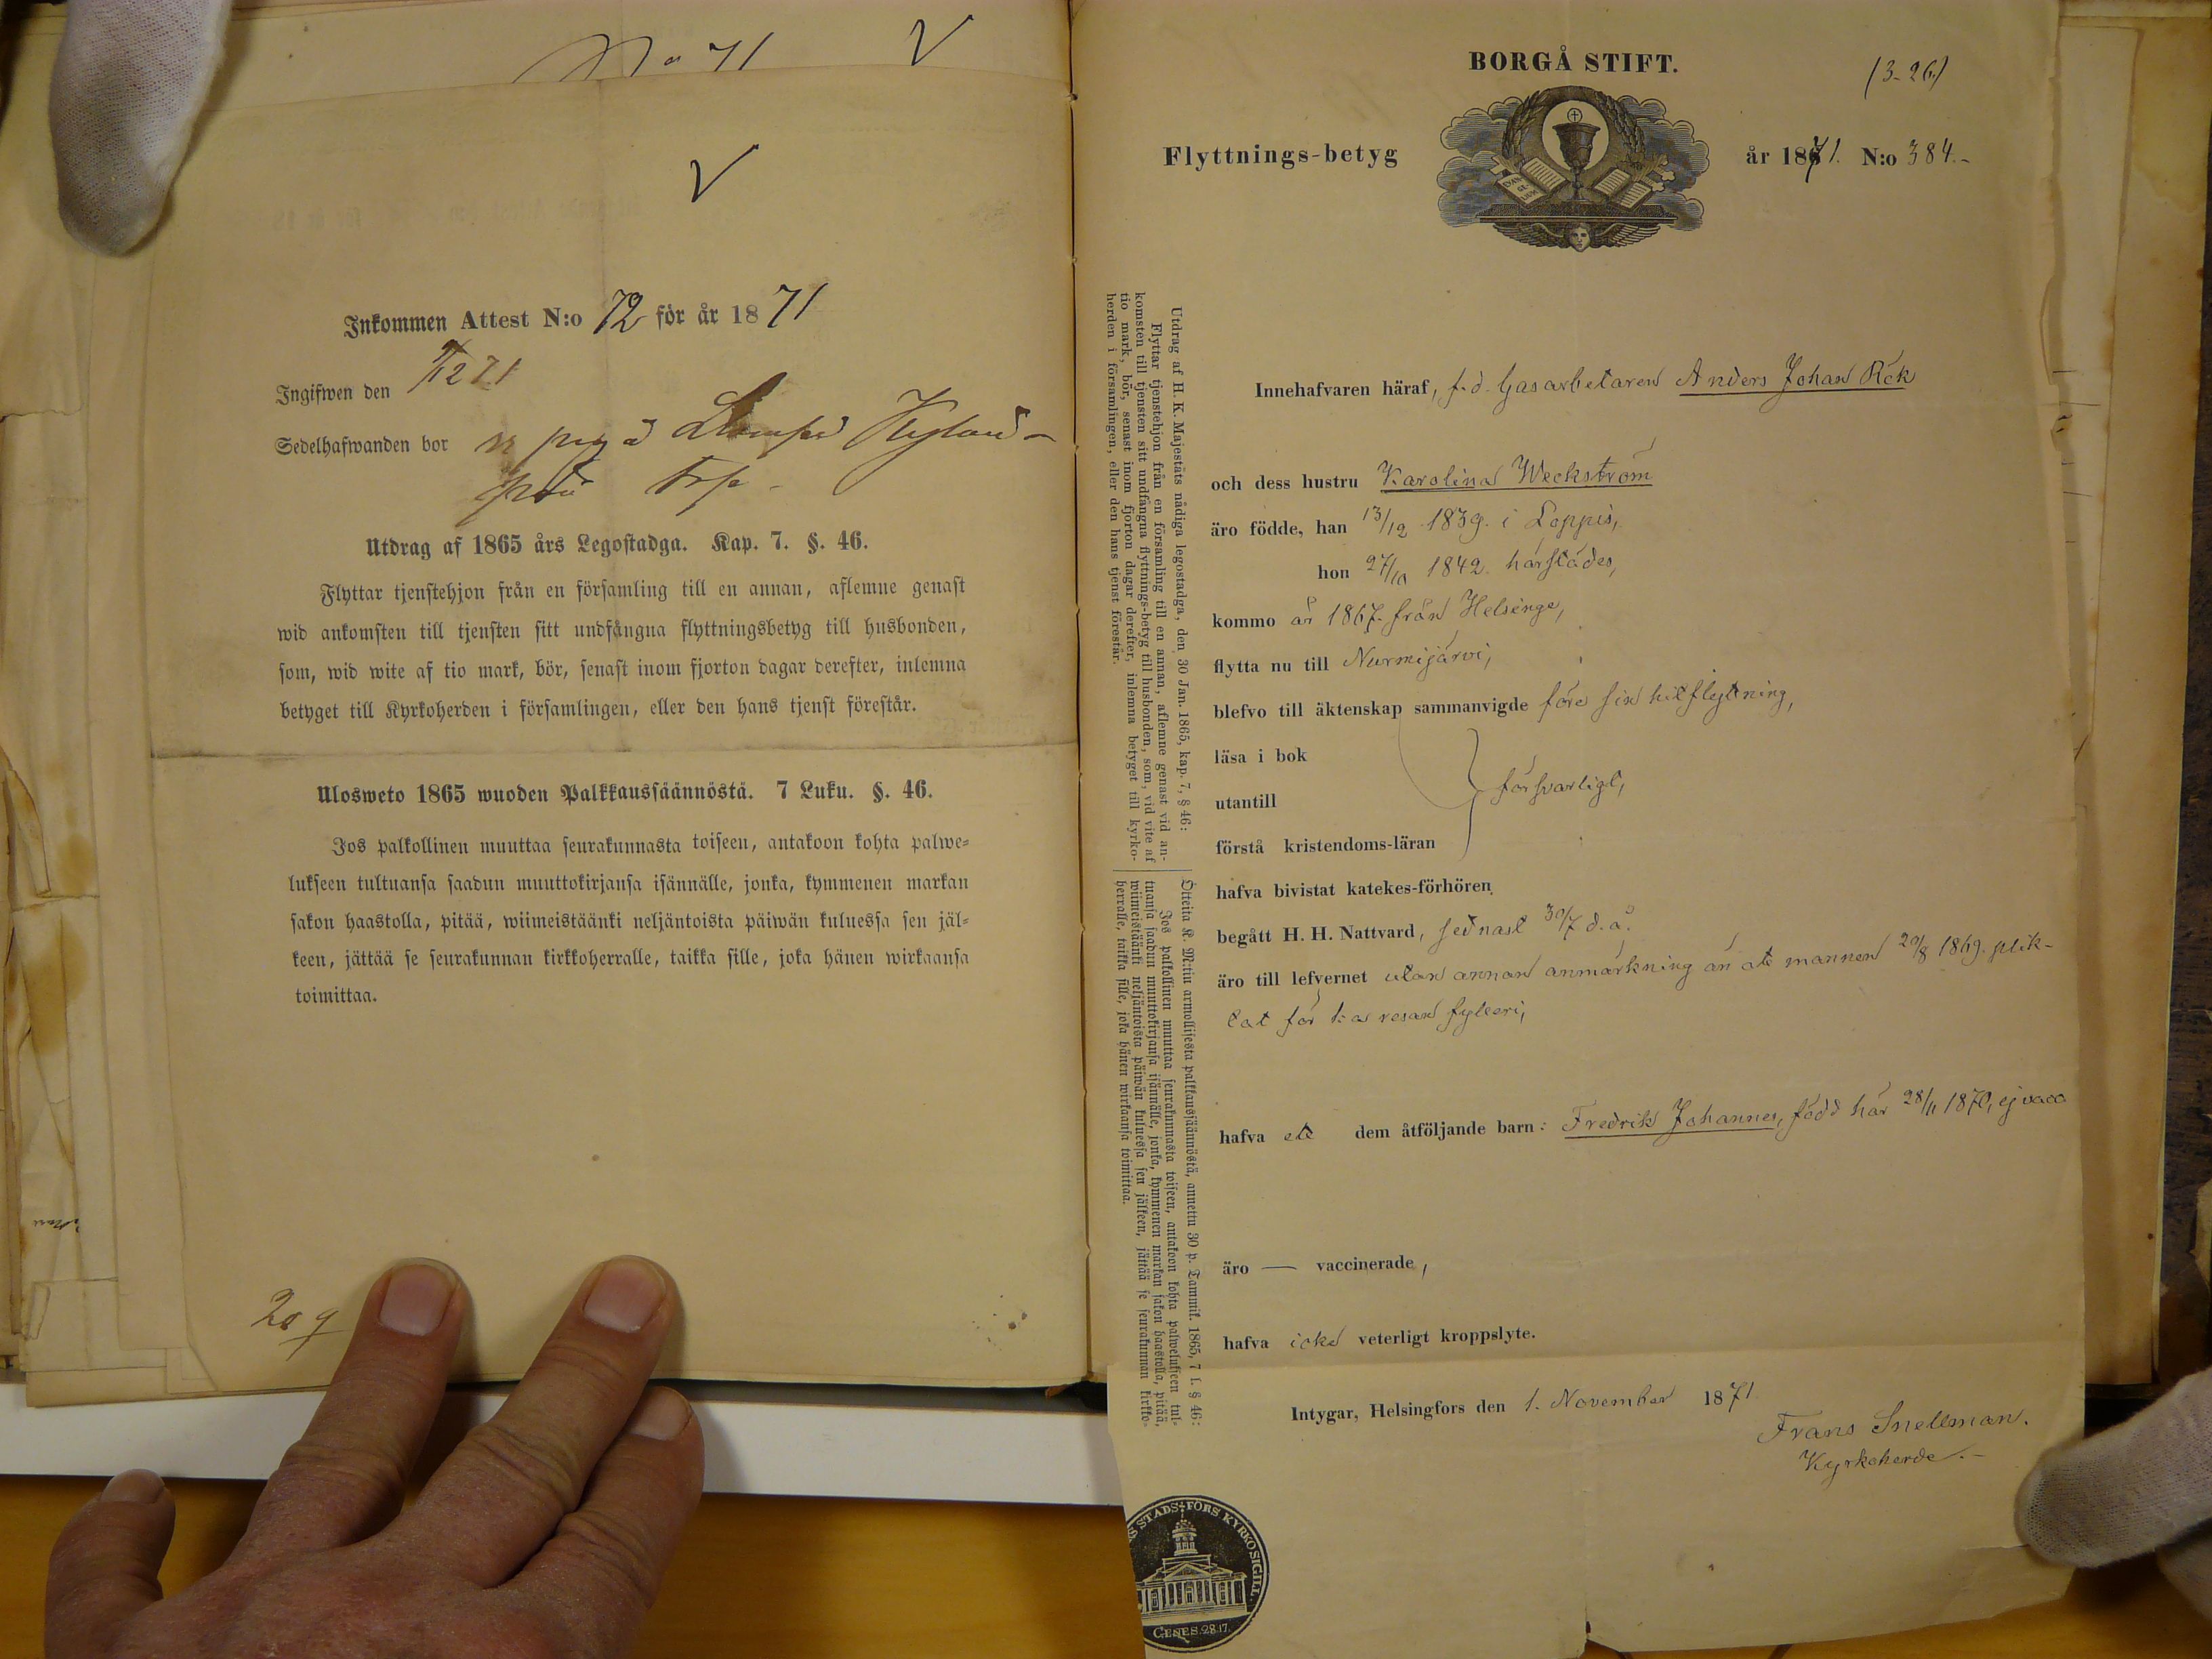 No 71 V
V
Inkommen Attest N:o 72 för år 1871
Ingifwen den
Sedelhafwanden bor
Utdrag af 1865 års Legostadga. Kap. 7. §. 46.
Flyttar tjenstehjon från en församling till en annan, aflemne genast
wid ankomsten till tjensten sitt undfångna flyttningsbetyg till husbonden,
som, wid wite af tio mark, bör, senast inom fjorton dagar derefter, inlemna
betyget till Kyrkoherden i församlingen, eller den hans tjenst förestår.
Ulosweto 1865 wuoden Palkkaussäännöstä. 7 Luku. §. 46.
Jos palkollinen muuttaa seurakunnasta toiseen, antakoon kohta palwe-
lukseen tultuansa saadun muuttokirjansa isännälle, jonka, kymmenen markan
sakon haastolla, pitää, wiimeistäänki neljäntoista päiwän kuluessa sen jäl-
keen, jättää se seurakunnan kirkkoherralle, taikka sille, joka hänen wirkaansa
toimittaa.
BORGÅ STIFT.
(3-26)
Flyttnings-betyg
år 1871. N:o 384.-
EVAN-
GE-
LIUM
Utdrag af H. K. Majestäts nådiga legostadga, den 30 Jan. 1865, kap. 7, § 46:
Flyttar tjenstehjon från en församling till en annan, aflemne genast vid an-
komsten till tjensten sitt undfångna flyttnings-betyg till husbonden, som, vid vite af
tio mark, bör, senast inom fjorton dagar derefter, inlemna betyget till kyrko-
herden i församlingen, eller den hans tjenst förestår.
Otteita K. M:tin armollisesta palkkaussäännöstä, annettu 30 p. Tammik. 1865, 7 l. § 46:
Jos palkollinen muuttaa seurakunnasta toiseen, antakoon kohta palwelukseen tul-
tuansa saadun muuttokirjansa isännälle, jonka, kymmenen markan sakon haastolla, pitää,
wiimeistäänki neljäntoista päiwän kuluessa sen jälkeen, jättää se seurakunnan kirkko-
herralle, taikka sille, joka hänen wirkaansa toimittaa.
Innehafvaren häraf, f.d. Gasarbetaren Anders Johan Rek
och dess hustru Karolina Weckström
äro födde, han 13/12 1839. i Loppis,
hon 27/10 1842. härstädes,
kommo år 1867. från Helsinge,
flytta nu till Nurmijärvi,
blefvo till äktenskap sammanvigde före sin hitflyttning,
läsa i bok
utantill
försvarligt,
förstå kristendoms-läran
hafva bivistat katekes-förhören
begått H. H. Nattvard, sednast 30/7 d. å.
äro till lefvernet utan annan anmärkning än att mannen 20/8 1869. plik-
tat för 1:a resan fylleri,
hafva ett dem åtföljande barn: Fredrik Johannes, född här 28/11 1870, ej vacc
äro — vaccinerade,
hafva icke veterligt kroppslyte.
Intygar, Helsingfors den 1. November 1871
Frans Snellman.
Kyrkoherde.-
STADS FÖRS KYRKOSIGILL
GENES. 28.17.
209